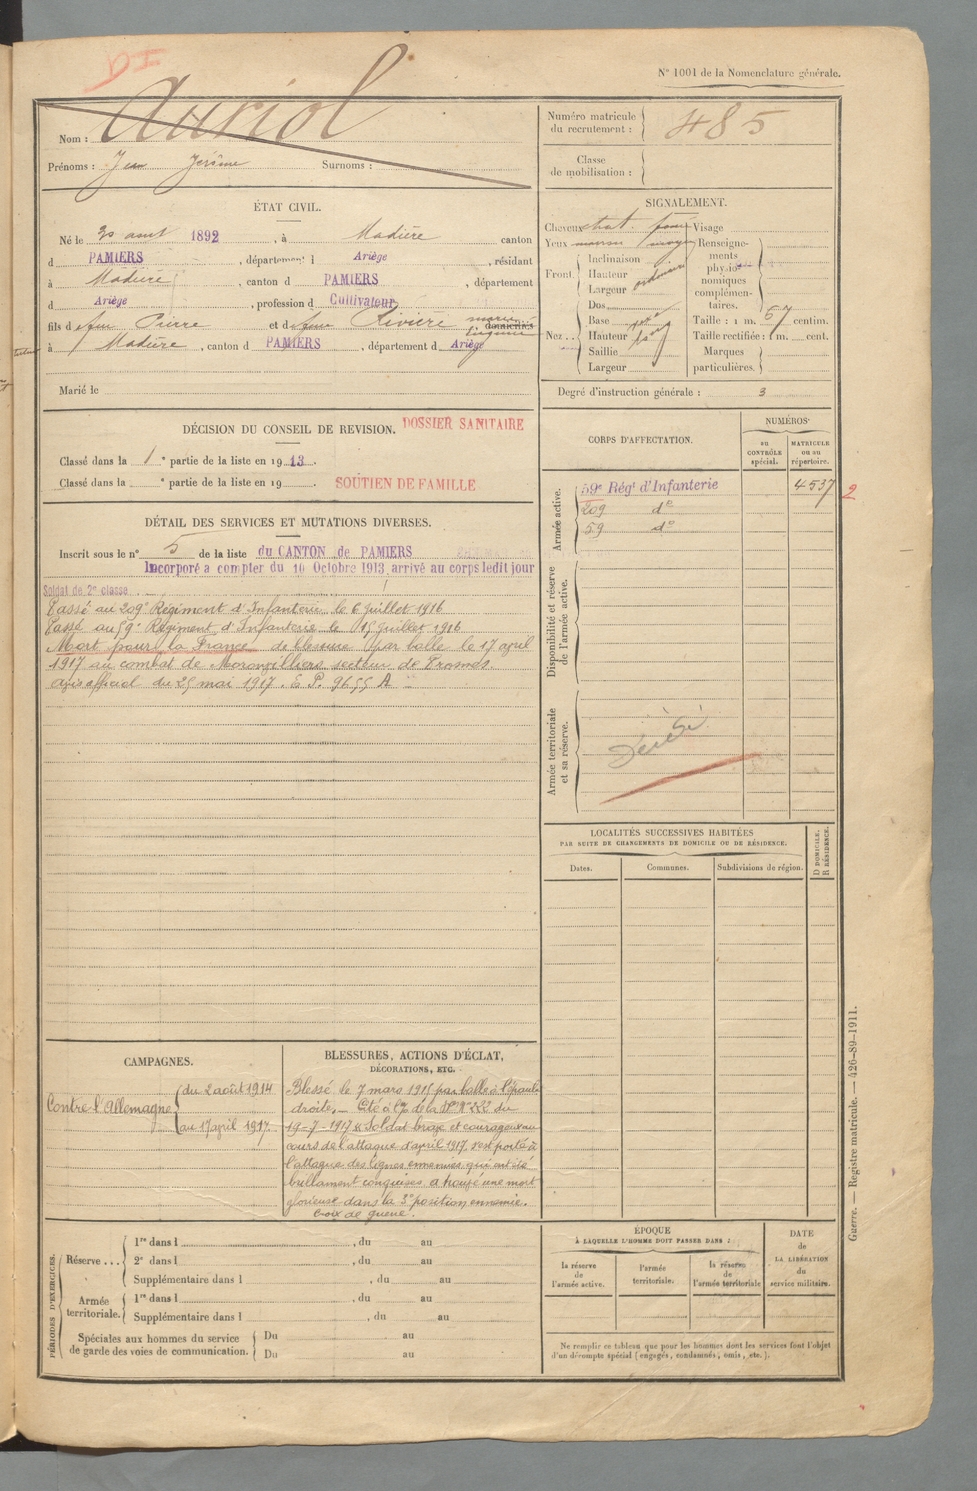 N° 1001 de la Nomenclature générale.
Nom : Auriol
Prénoms : Jean Jérôme Surnoms :
Numéro matricule du recrutement : 485
Classe de mobilisation :
ÉTAT CIVIL.
Né le 30 aout 1892, à Madière canton
d PAMIERS, département d Ariège, résidant
à Madière, canton d PAMIERS, département
d Ariège, profession d Cultivateur
fils d feu Pierre et d feue Rivière domiciliés
à Madière, canton d PAMIERS, département d Ariège
Marié le
SIGNALEMENT.
Cheveux chat. foncé Visage
Yeux marron moyen
Front. Inclinaison
Hauteur ordinaire
Largeur
Nez . . Dos
Base
Hauteur
Saillie
Largeur
Renseignements physionomiques complémentaires.
Taille : 1 m. 67 centim.
Taille rectifiée : 1 m. cent.
Marques particulières.
Degré d'instruction générale : 3
DÉCISION DU CONSEIL DE REVISION. DOSSIER SANITAIRE
Classé dans la 1e partie de la liste en 1913.
Classé dans la e partie de la liste en 19 . SOUTIEN DE FAMILLE
DÉTAIL DES SERVICES ET MUTATIONS DIVERSES.
Inscrit sous le n° 5 de la liste du CANTON de PAMIERS
Incorporé à compter du 10 Octobre 1913, arrivé au corps ledit jour
Soldat de 2e classe
Passé au 209e Régiment d'Infanterie le 6 juillet 1916
Passé au 59e Régiment d'Infanterie le 15 juillet 1916
Mort pour la France de blessure par balle le 17 avril
1917 au combat de Moronvilliers secteur de Prosnes.
avis officiel du 25 mai 1917. E P. 9655 A
CORPS D'AFFECTATION.
NUMÉROS
au CONTRÔLE spécial.
MATRICULE ou au répertoire.
Armée active.
59e Régt d'Infanterie 4537 2
209 do
59 do
Disponibilité et réserve de l'armée active.
Armée territoriale et sa réserve.
Décédé
LOCALITÉS SUCCESSIVES HABITÉES
PAR SUITE DE CHANGEMENTS DE DOMICILE OU DE RÉSIDENCE.
D DOMICILE.
R RÉSIDENCE.
Dates. Communes. Subdivisions de région.
CAMPAGNES.
Contre l'Allemagne
du 2 août 1914
au 17 avril 1917.
BLESSURES, ACTIONS D'ÉCLAT,
DÉCORATIONS, ETC.
Blessé le 7 mars 1915 par balle à l'épaule
droite. — Cité à l'o/ de la DI N° 232 du
19-7-1917 « Soldat brave et courageux au
cours de l'attaque d'avril 1917, s'est porté à
l'attaque des lignes ennemies qui ont été
brillament conquises, a trouvé une mort
glorieuse dans la 3e position ennemie.
Croix de guerre.
PÉRIODES D'EXERCICES.
Réserve . . . 1re dans l , du au
2e dans l , du au
Supplémentaire dans l , du au
Armée territoriale. 1re dans l , du au
Supplémentaire dans l , du au
Spéciales aux hommes du service de garde des voies de communication. Du au
Du au
ÉPOQUE
À LAQUELLE L'HOMME DOIT PASSER DANS :
la réserve de l'armée active.
l'armée territoriale.
la réserve de l'armée territoriale
DATE de LA LIBÉRATION du service militaire.
Ne remplir ce tableau que pour les hommes dont les services font l'objet
d'un décompte spécial (engagés, condamnés, omis, etc.).
Guerre. — Registre matricule. — 426-89-1911.